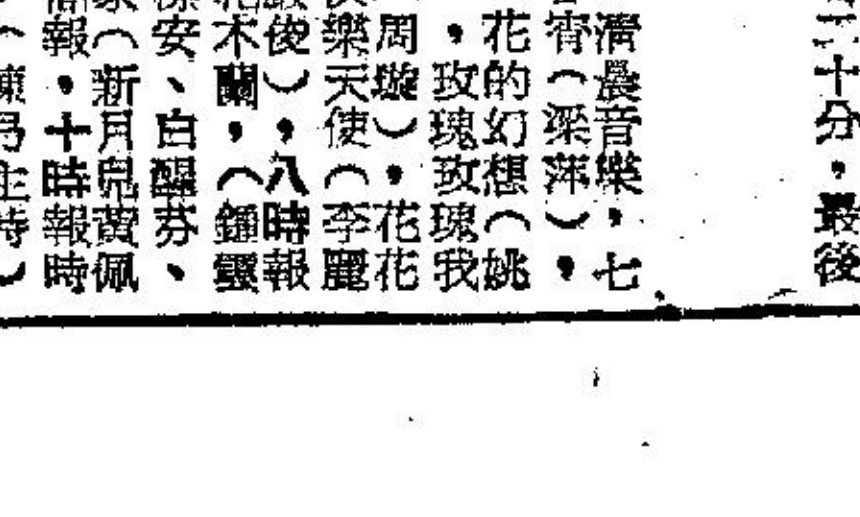 二十分，最後
清晨音樂，七
宵（梁萍），
花的幻想（姚
，玫瑰玫瑰我
周璇），花花
樂天使（李麗
嚴俊），八時報
花木蘭，（鍾靈
安、白醒芬、
家（新月兒黃佩
報，十時報時
（陳